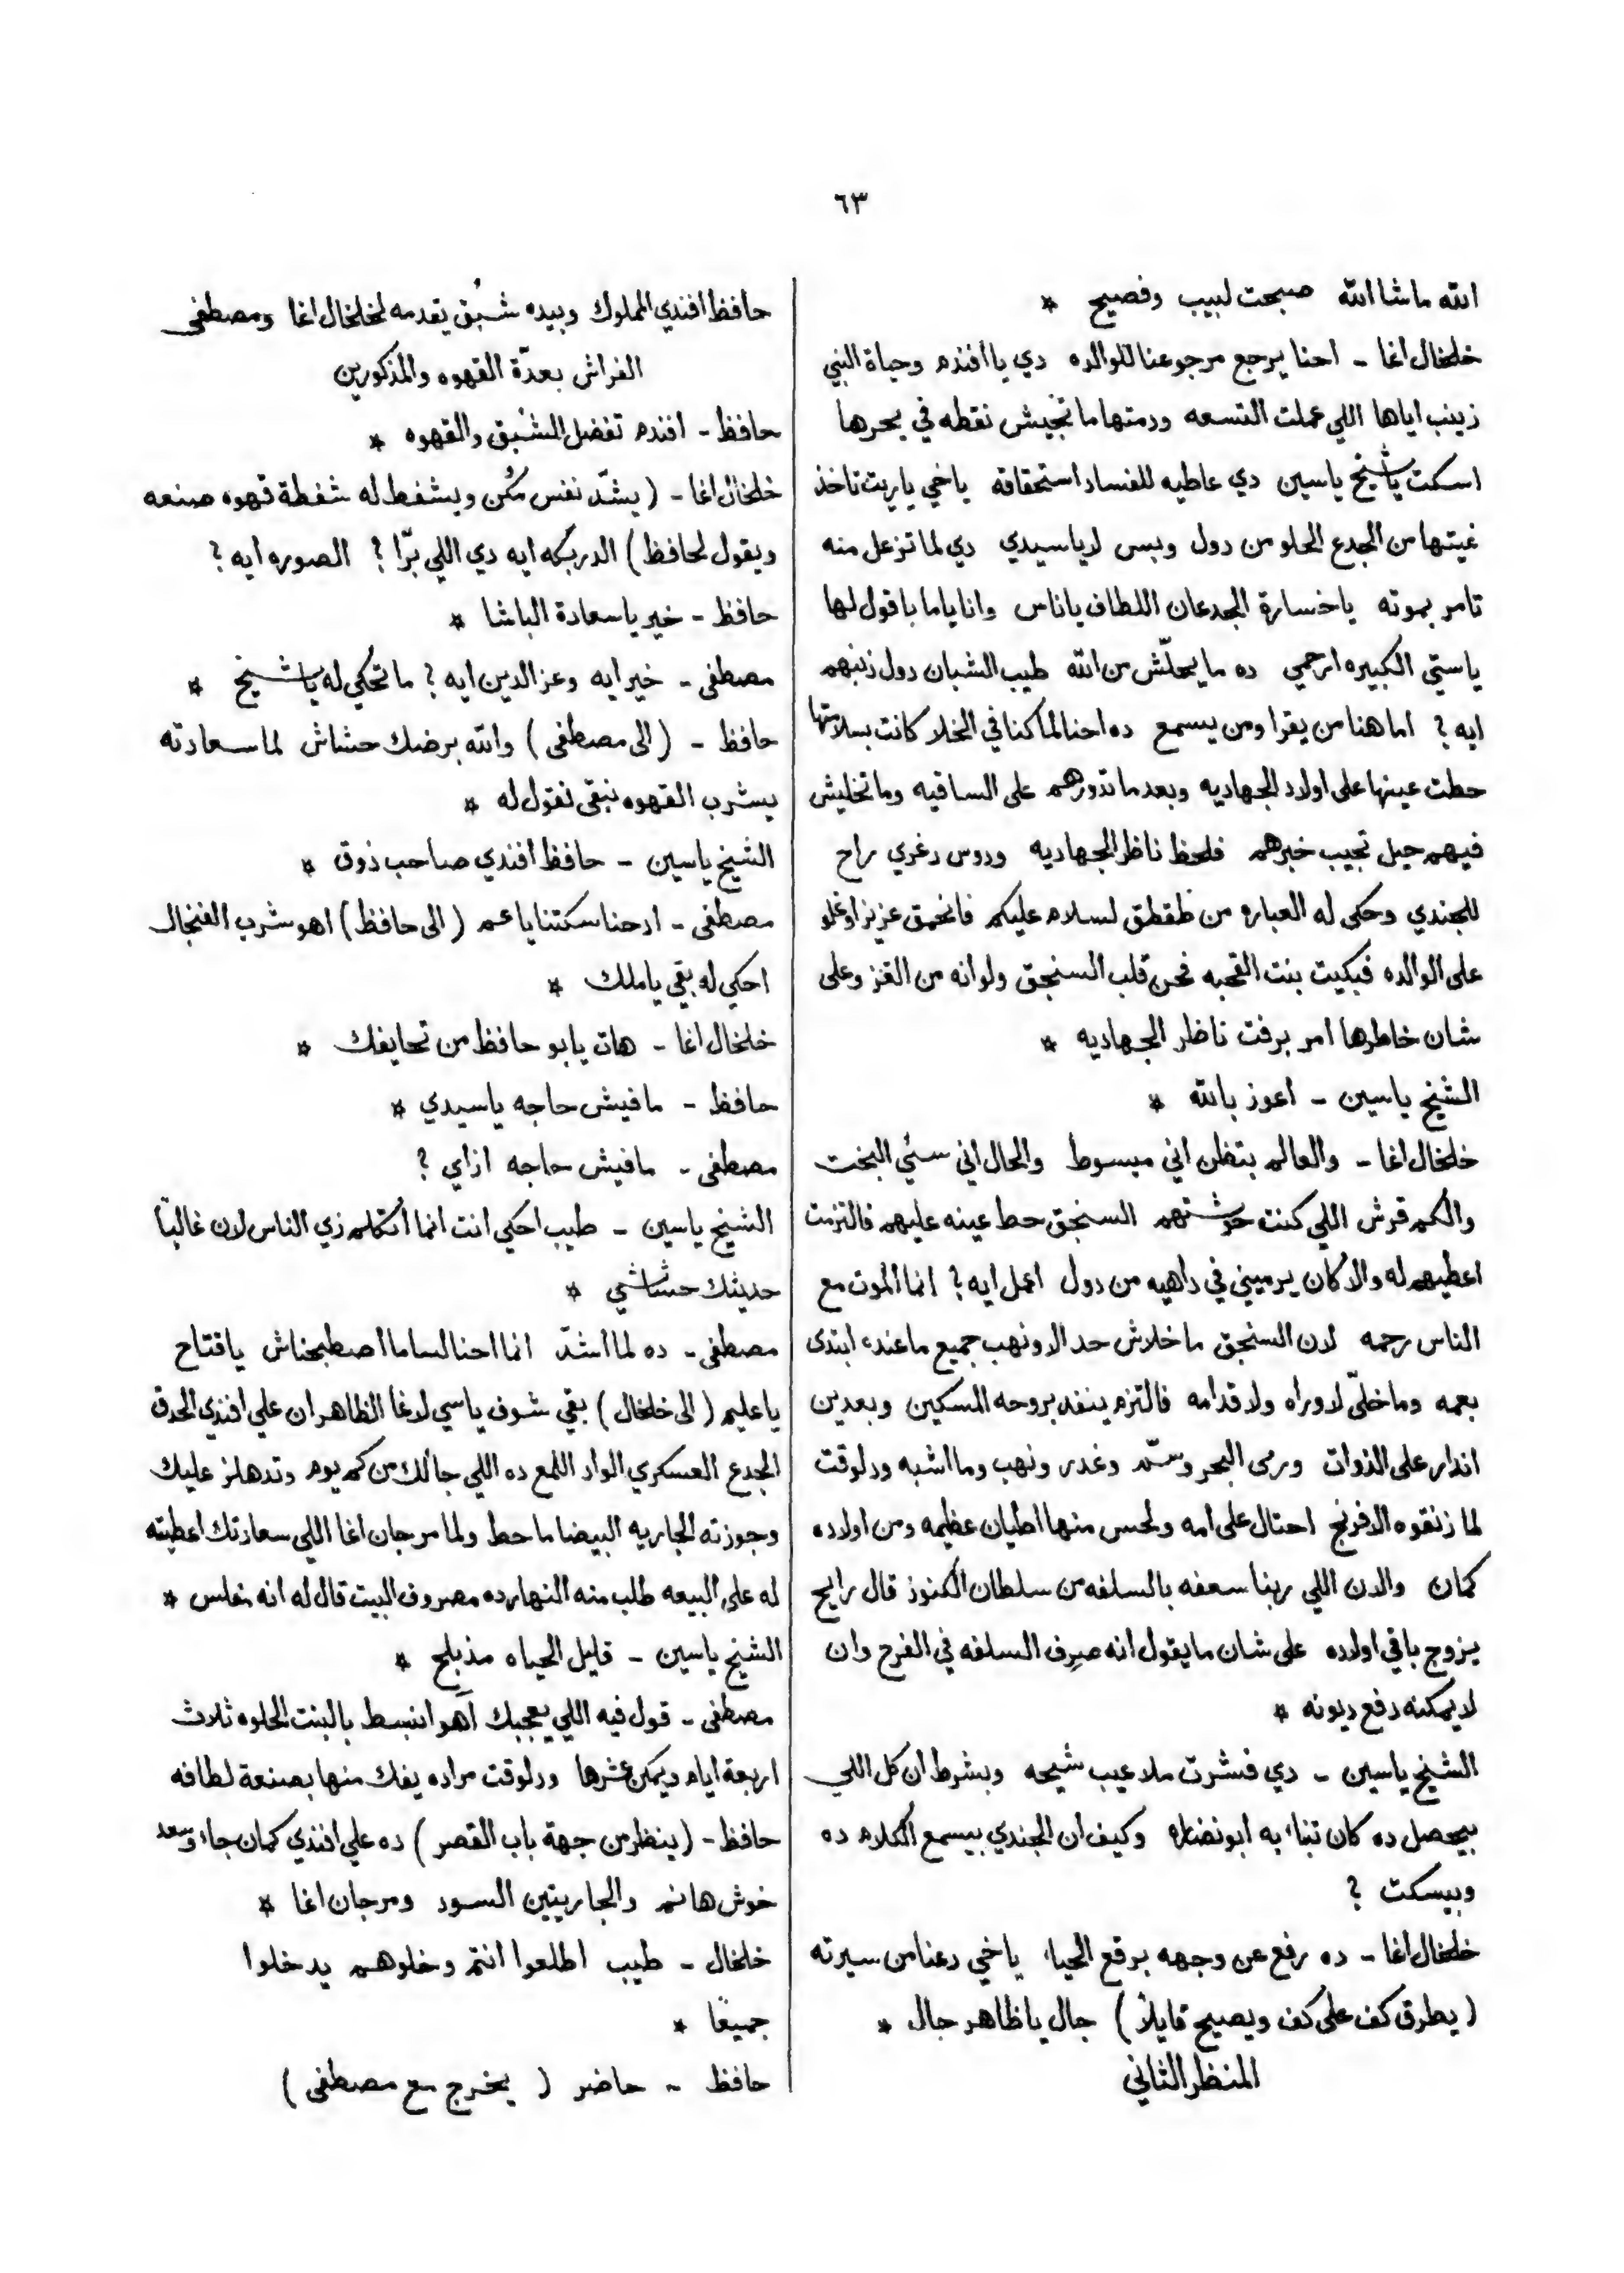 ٦٣
الله ماشا الله صبحت لبيب وفصيح *
خلخال اغا - احنا يرجع مرجوعنا للوالده دي يا افندم وحياة النبي
زينب اياها اللي عملت التسعه ودمتها ما تجيش نقطه في بحرها
اسكت يا شيخ ياسين دي عاطيه للفساد استحقاقه ياخي ياريت تاخذ
غيتها من الجدع الحلو من دول وبس لا ياسيدي دي لما تزعل منه
تامر بموته ياخسارة الجدعان اللطاف ياناس وانا ياما باقول لها
ياستي الكبيره ارحمي ده ما يحلّش من الله طيب الشبان دول زنبهم
ايه ؟ اما هنا من يقرا ومن يسمع ده احنا لما كنا في الخلا كانت بسلامتها
حطت عينها على اولاد الجهاديه وبعد ما تدورهم على الساقيه وما تخليش
فيهم حيل تجيب خبرهم فلحظ ناظر الجهاديه ودوس دغري راح
للجندي وحكى له العباره من طقطق لسلام عليكم فانحمق عزيز اوغلو
على الوالده فبكيت بنت القحبه فحن قلب السنجق ولو انه من الغز وعلى
شان خاطرها امر برفت ناظر الجهاديه *
الشيخ ياسين - اعوز بالله *
خلخال اغا - والعالم بتظن اني مبسوط والحال اني سئي البخت
والكم قرش اللي كنت حوشتهم السنجق حط عينه عليهم فالتزمت
اعطيهم له والا كان يرميني في داهيه من دول اعمل ايه ؟ انما الموت مع
الناس رحمه لان السنجق ما خلاش حد الا ونهب جميع ما عنده ابتدى
بعمه وما خلّى لا وراه ولا قدامه فالتزم ينفد بروحه المسكين وبعدين
اندار على الذوات ورمى البحر وسمّ وغدر ونهب وما اشبه ودلوقت
لما زنقوه الافرنج احتال على امه ولحس منها اطيان عظيمه ومن اولاده
كمان والدن اللي ربنا سعفه بالسلفه من سلطان الكنوز قال رايح
يزوج باقي اولاده على شان ما يقول انه صرف السلفه في الفرح وان
لا يمكنه دفع ديونه *
الشيخ ياسين - دي فشرت ملاعيب شيحه وبشرط ان كل اللي
بيحصل ده كان تنباء به ابو نضاره وكيف ان الجندي بيسمع الكلام ده
وبيسكت ؟
خلخال اغا - ده رفع عن وجهه برقع الحياء ياخي دعنا من سيرته
( يطرق كف على كف ويصيح قايلاً ) جال يا ظاهر جال *
المنظر الثاني
حافظ افندي المملوك وبيده شبُق يقدمه لخلخال اغا ومصطفى
الفراش بعدّة القهوه والمذكورين
حافظ - افندم تفضل الشبُق والقهوه *
خلخال اغا - ( يشدّ نفس مكُن ويشفط له شفطة قهوه صنعه
ويقول لحافظ ) الدربكه ايه دي اللي برّا ؟ الصوره ايه ؟
حافظ - خير يا سعادة الباشا *
مصطفى - خير ايه وعز الدين ايه ؟ ما تحكي له يا شيخ *
حافظ - ( الى مصطفى ) والله برضك حشاش لما سعادته
يشرب القهوه نبقى نقول له *
الشيخ ياسين - حافظ افندي صاحب ذوق *
مصطفى - ادحنا سكتنا يا عم ( الى حافظ ) اهو شرب الفنجال
احكي له بقي يا ملك *
خلخال اغا - هات يابو حافظ من تحايفك *
حافظ - مافيش حاجه ياسيدي *
مصطفى - مافيش حاجه ازاي ؟
الشيخ ياسين - طيب احكي انت انما أتكلم زي الناس لان غالباً
حديثك حشاشي *
مصطفى - ده لما أشدّ انما احنا لسا ما اصطبحناش يا فتاح
يا عليم ( الى خلخال ) بقي شوف ياسي لاغا الظاهر ان علي افندي الحدق
الجدع العسكري الواد اللمع ده اللي جالك من كم يوم وتدهلز عليك
وجوزته الجاريه البيضا ما حط ولما مرجان اغا اللي سعادتك اعطيته
له على البيعه طلب منه النهارده مصروف البيت قال له انه مفلس *
الشيخ ياسين - قليل الحياه مذبلح *
مصطفى - قول فيه اللي يعجبك آهو انبسط بالبنت الحلوه ثلاث
اربعة ايام ويمكن عشرها ودلوقت مراده يفك منها بصنعة لطافه
حافظ - ( ينظر من جهة باب القصر ) ده علي افندي كمان جاء وسعد
خوش هانم والجاريتين السود ومرجان اغا *
خلخال - طيب اطلعوا انتم وخلوهم يدخلوا
جميعًا *
حافظ - حاضر ( يخرج مع مصطفى )